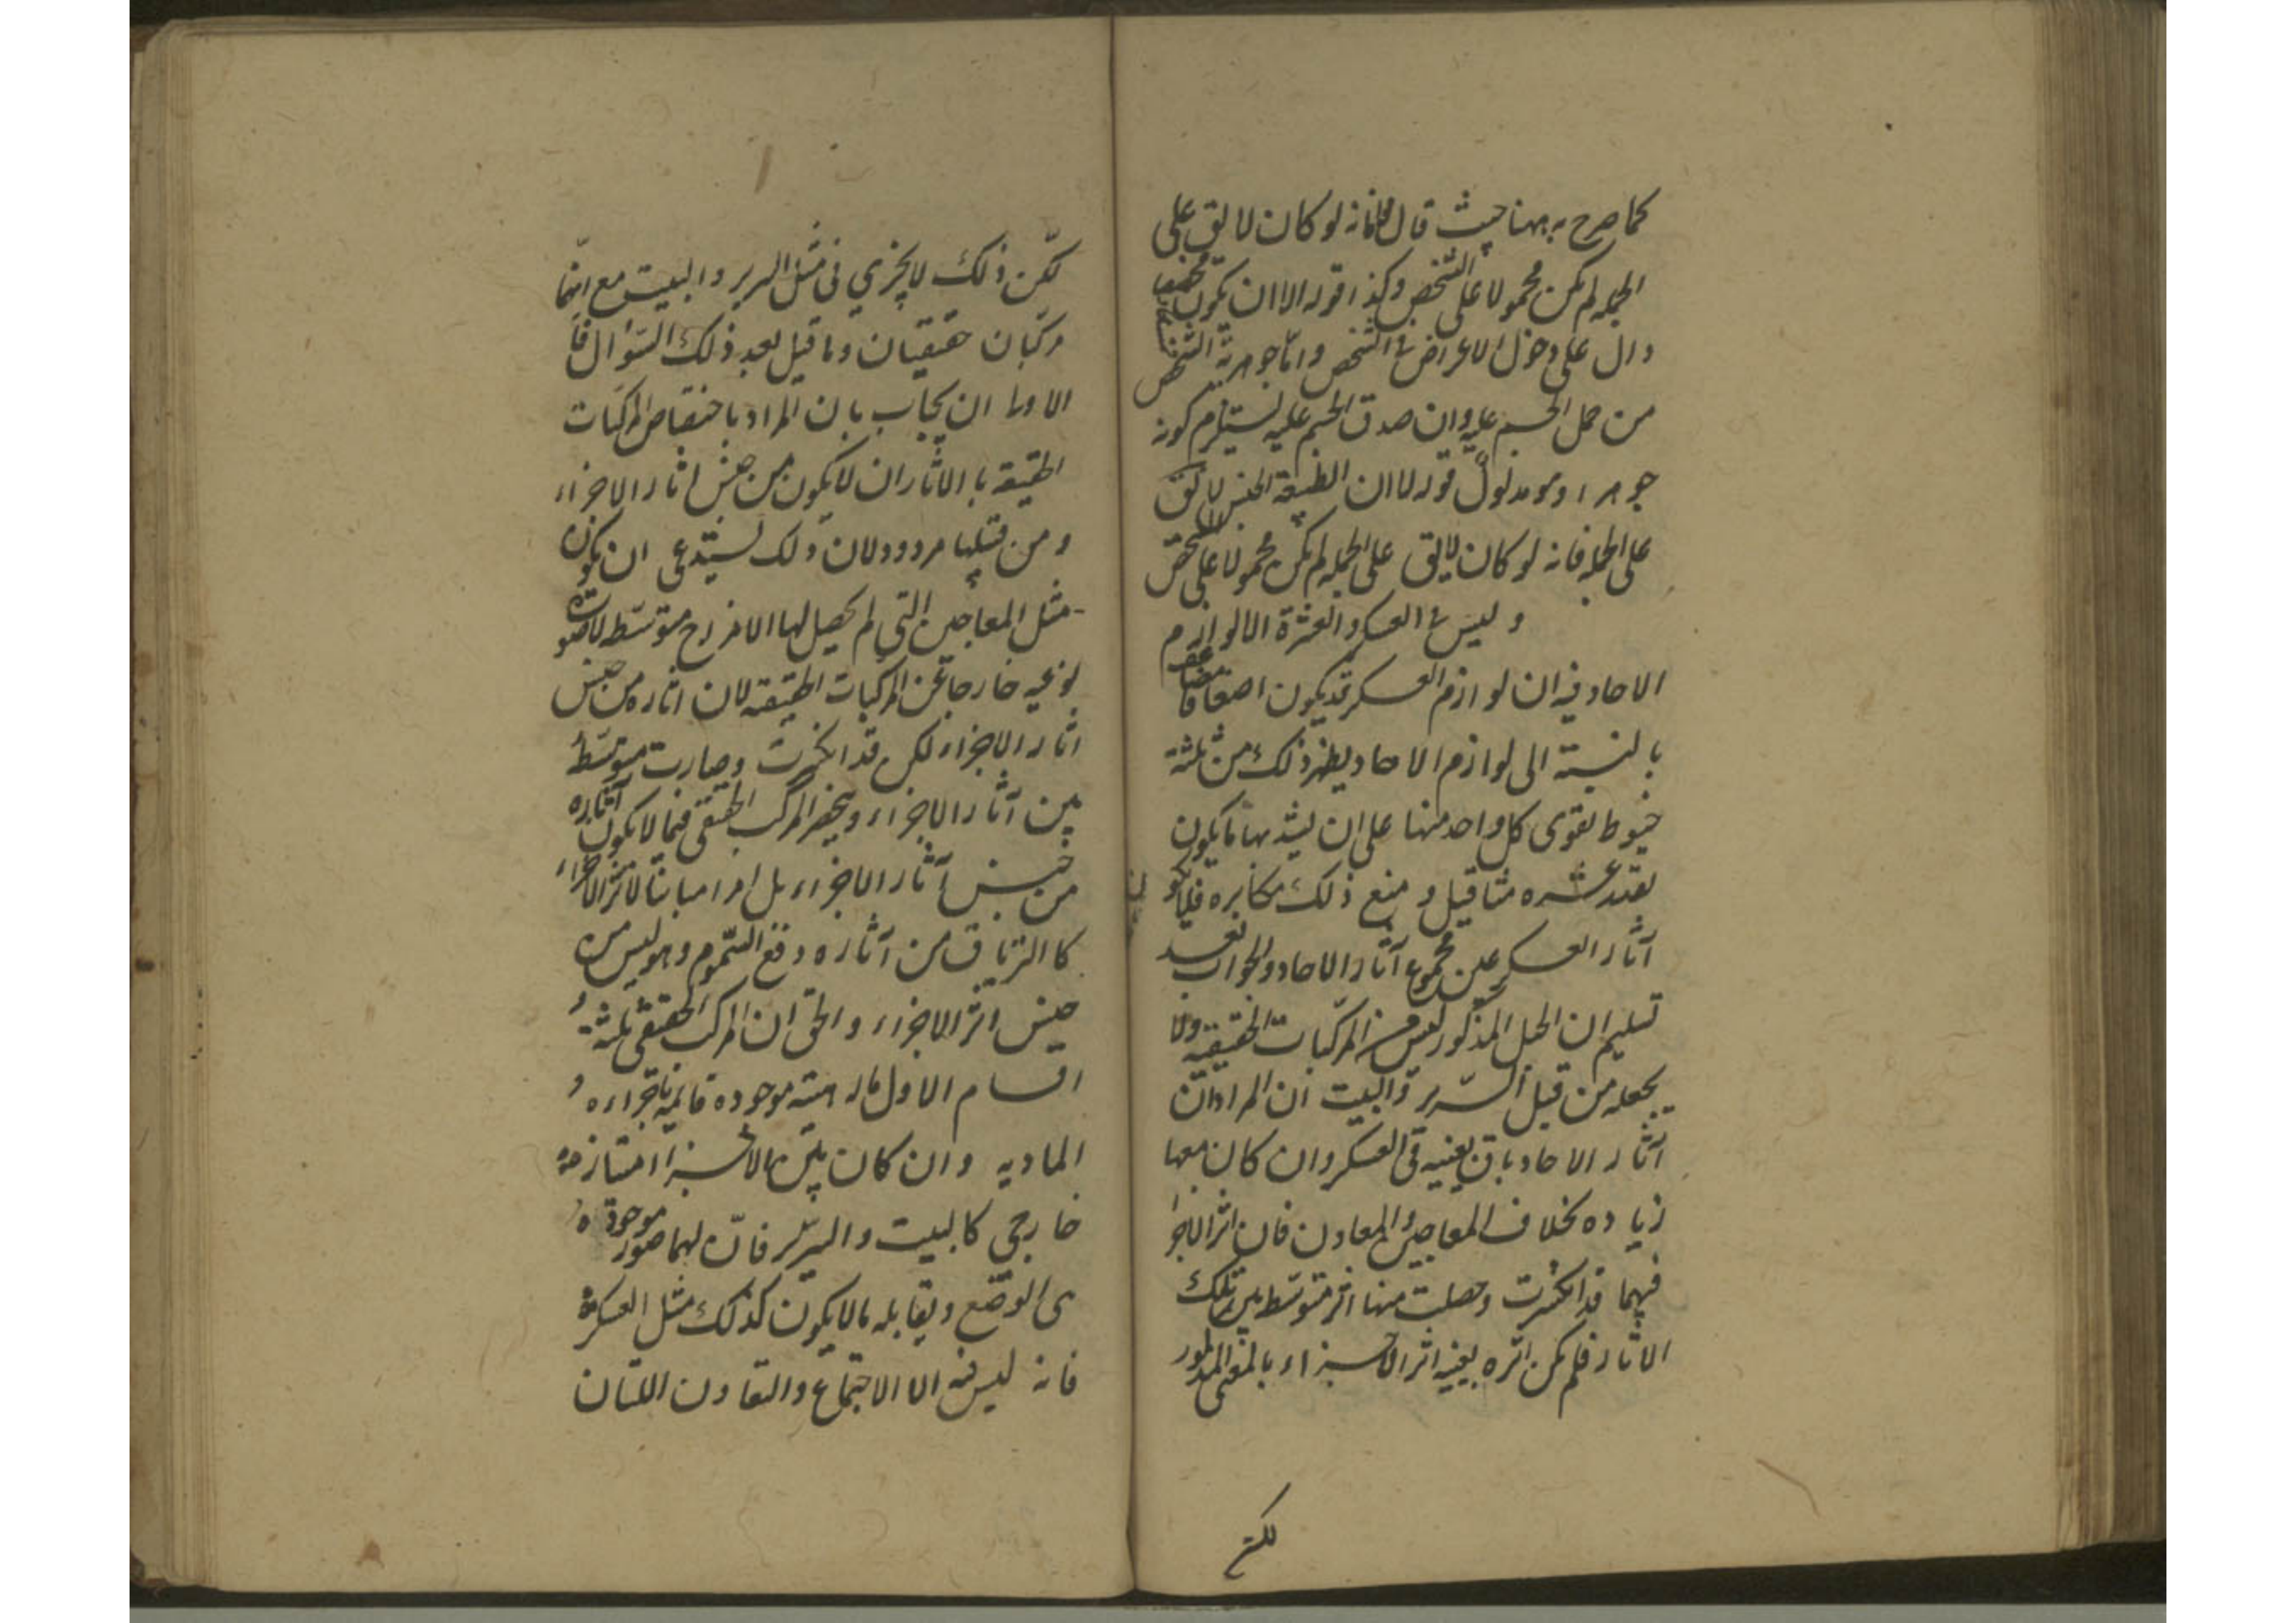 كما صرح به ههنا حيث قال فانه لو كان لا يق على
الجمله لم يكن محمولا على الشخص وكذا قوله الا ان يكون
دال على دخول الاعراض في الشخص واما جوهرية الشخص
من حمل الجسم عليه وان صدق الجسم عليه يستلزم كونه
جوهرا وهو مدلول قوله لا ان الطبيعة الجنس لا يق
على الجمله فانه لو كان لا يق على الجمله لم يكن محمولا على الشخص
وليس في العسكر والعشرة الا لوازم
الاحاد فيه ان لوازم العسكر قد يكون اضعافا
بالنسبة الى لوازم الاحاد يظهر ذلك من ثلثة
خيوط يقوى كل واحد منها على ان يشد بها ما يكون
بقدر عشره مثاقيل و منع ذلك مكابره فلا يكون
آثار العسكر عين مجموع آثار الاحاد والجواب بعد
تسليم ان الحبل المذكور ليس من المركبات الحقيقية ولا
يجعله من قبيل السرير والبيت ان المراد ان
آثار الاحاد باق بعينه في العسكر وان كان معها
زياده بخلاف المعاجين والمعادن فان اثر الاجزا
فيهما قد انكسرت وحصلت منها اثر متوسط بين تلك
الاثار فلم يكن اثره بعينه اثر الاجزاء بالمعنى المذكور
لكن
لكن ذلك لا يجزي في مثل السرير والبيت مع انهما
مركبان حقيقيان وما قيل بعد ذلك السؤال فا
الاولى ان يجاب بان المراد باختصاص المركبات
الحقيقة بالاثار ان لا يكون من جنس اثار الاجزاء
و من قبيلها مردود لان ذلك يستدعى ان يكون
مثل المعاجين التي لم يحصل لها الا مزاج متوسط لا صورة
نوعيه خارجا عن المركبات الحقيقة لان اثاره من جنس
اثار الاجزاء لكن قد انكسرت وصارت متوسط
بين آثار الاجزاء وينحصر المركب الحقيقى فيما لا يكون آثاره
من جنس آثار الاجزاء بل امرا مباينا لاثر الاجزاء
كا الترياق من آثاره دفع السموم وهو ليس من
جنس اثر الاجزاء والحق ان المركب الحقيقى ثلثة
اقسام الاول ماله هيئة موجوده قائمة باجزاءه
الماديه وان كان بين الاجزاء امتياز
خارجى كا لبيت والسرير فان لهما صورة موجودة
هى الوضع ويقابله ما لا يكون كذلك مثل العسكر
فانه ليس فيه الا الاجتماع والتعاون اللتان